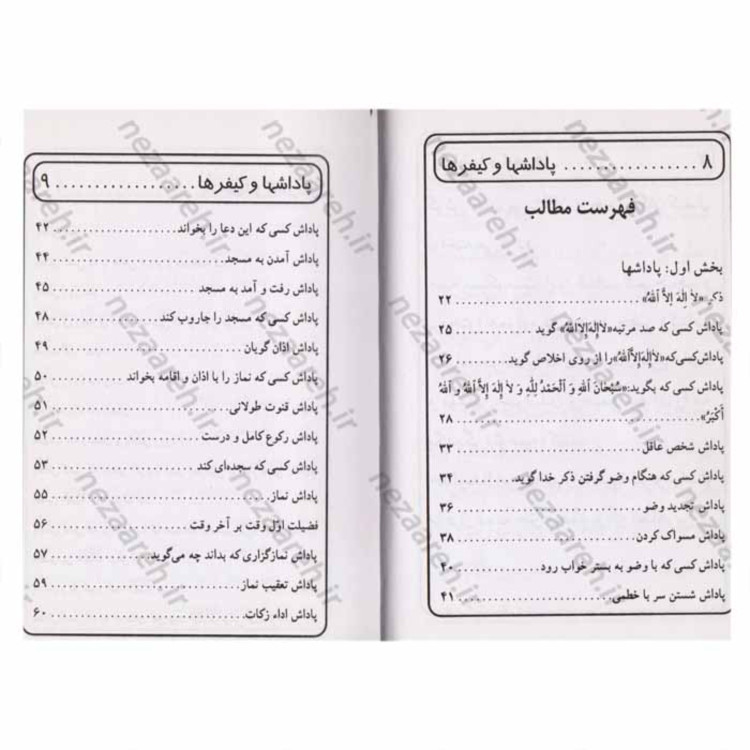 ۸ ................. پاداشها و کیفرها
فهرست مطالب
بخش اول: پاداشها
ذکر «لاٰ اِلٰهَ اِلاَّ اللهُ» ۲۲
پاداش کسی که صد مرتبه «لاٰاِلٰهَ اِلاَّاللهُ» گوید ۲۵
پاداش کسی که «لاٰاِلٰهَ اِلاَّاللهُ» را از روی اخلاص گوید ۲۶
پاداش کسی که بگوید: «سُبْحٰانَ اللهِ وَ اَلْحَمْدُ لِلّٰهِ وَ لاٰ اِلٰهَ اِلاَّ اللهُ وَ اللهُ
اَکْبَرُ» ۲۸
پاداش شخص عاقل ۳۳
پاداش کسی که هنگام وضو گرفتن ذکر خدا گوید ۳۴
پاداش تجدید وضو ۳۶
پاداش مسواک کردن ۳۸
پاداش کسی که با وضو به بستر خواب رود ۴۰
پاداش شستن سر با خطمی ۴۱
پاداشها و کیفرها ................. ۹
پاداش کسی که این دعا را بخواند ۴۲
پاداش آمدن به مسجد ۴۴
پاداش رفت و آمد به مسجد ۴۵
پاداش کسی که مسجد را جاروب کند ۴۸
پاداش اذان گویان ۴۹
پاداش کسی که نماز را با اذان و اقامه بخواند ۵۰
پاداش قنوت طولانی ۵۱
پاداش رکوع کامل و درست ۵۲
پاداش کسی که سجده‌ای کند ۵۳
پاداش نماز ۵۵
فضیلت اوّل وقت بر آخر وقت ۵۶
پاداش نمازگزاری که بداند چه می‌گوید ۵۷
پاداش تعقیب نماز ۵۹
پاداش اداء زکات ۶۰
nezaareh.ir